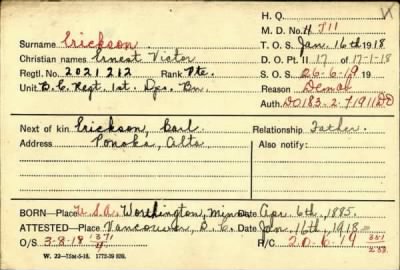 H. Q.
M. D. No. 11 J11
Surname Erickson T. O. S. Jan. 16th 1918
Christian names Ernest Victor D. O. Pt II 17 of 17-1-18
Regtl. No. 2021212 Rank Pte. S. O. S. 26-6-19 19
Unit B. C. Regt. 1st. Dps. Bn. Reason Demob
Auth. DO183-2-7-1911DD
Next of kin Erickson, Carl Relationship Father.
Address Ponoka, Alta Also notify:
BORN—Place U. S. A. Worthington, Minn Date Apr. 6th, 1885.
ATTESTED—Place Vancouver, B. C. Date Jan. 16th, 1918
O/S 3-8-18 R/C 20-6-19
W. 22—